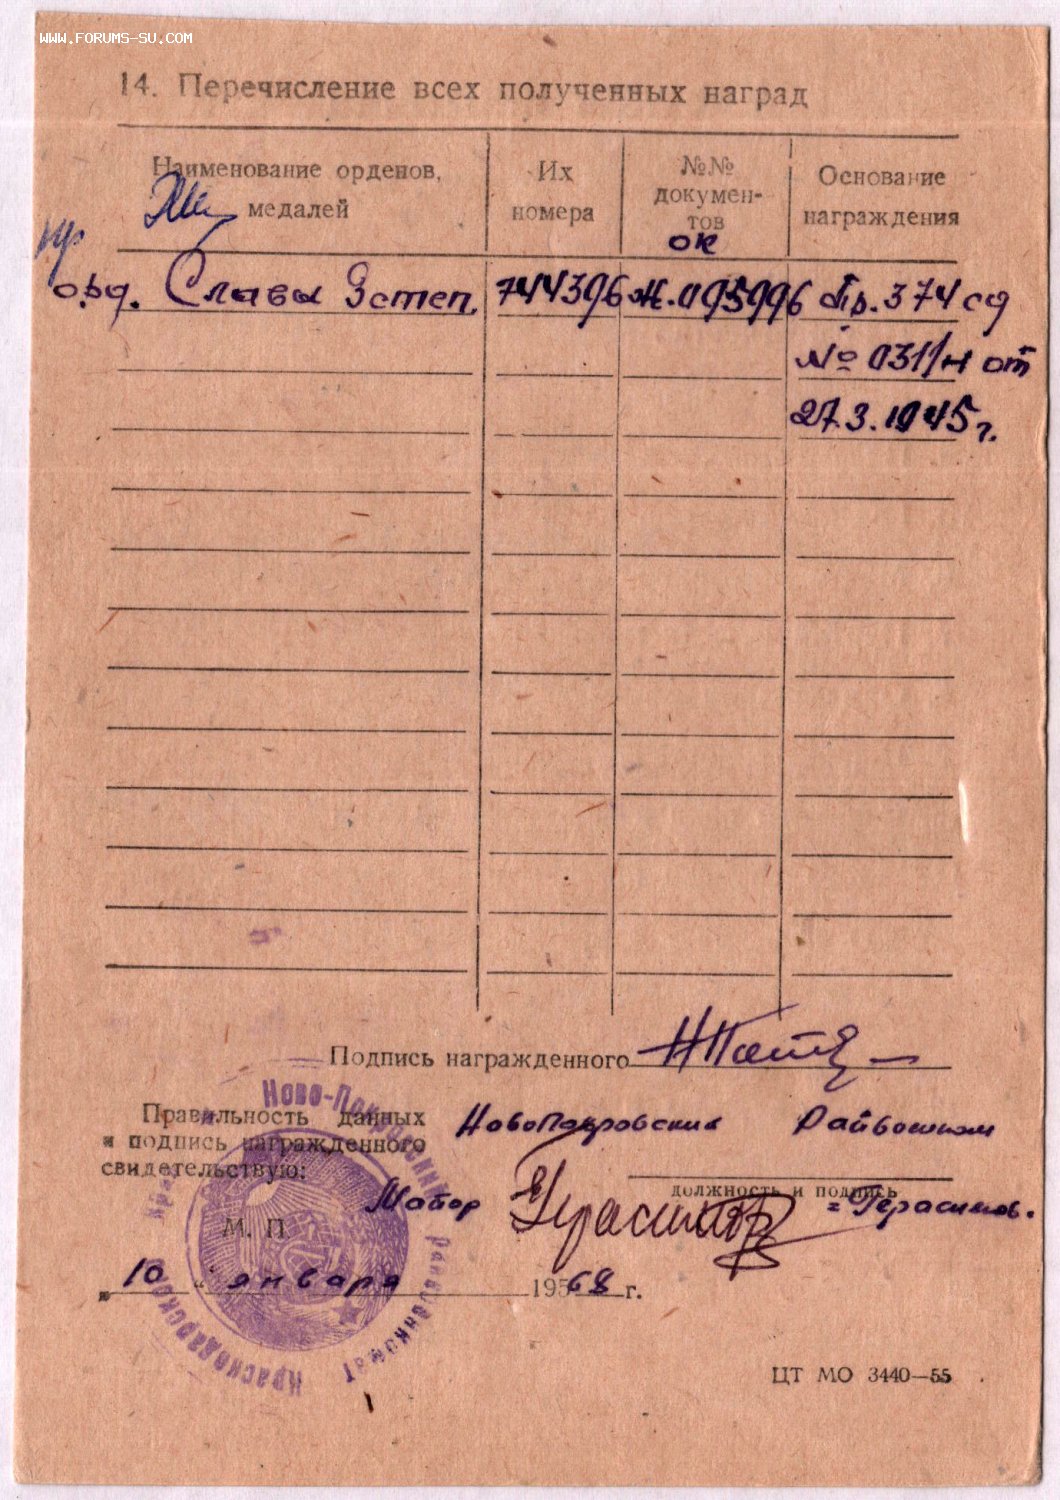 WWW.FORUMS-SU.COM
14. Перечисление всех полученных наград
Наименование орденов, медалей
Их номера
№№ документов
Основание награждения
ок
орд. Славы 3 степ. 744396 Ж.095996 Пр. 374 сд
№ 031/н от
27.3.1945 г.
Подпись награжденного
Правильность данных
и подпись награжденного
свидетельствую:
Новопокровский Райвоенком
должность и подпись
Майор Герасимов
Герасимов.
М. П.
"10" января 1968 г.
Ново-Покровский райвоенкомат Краснодарского края
ЦТ МО 3440—55